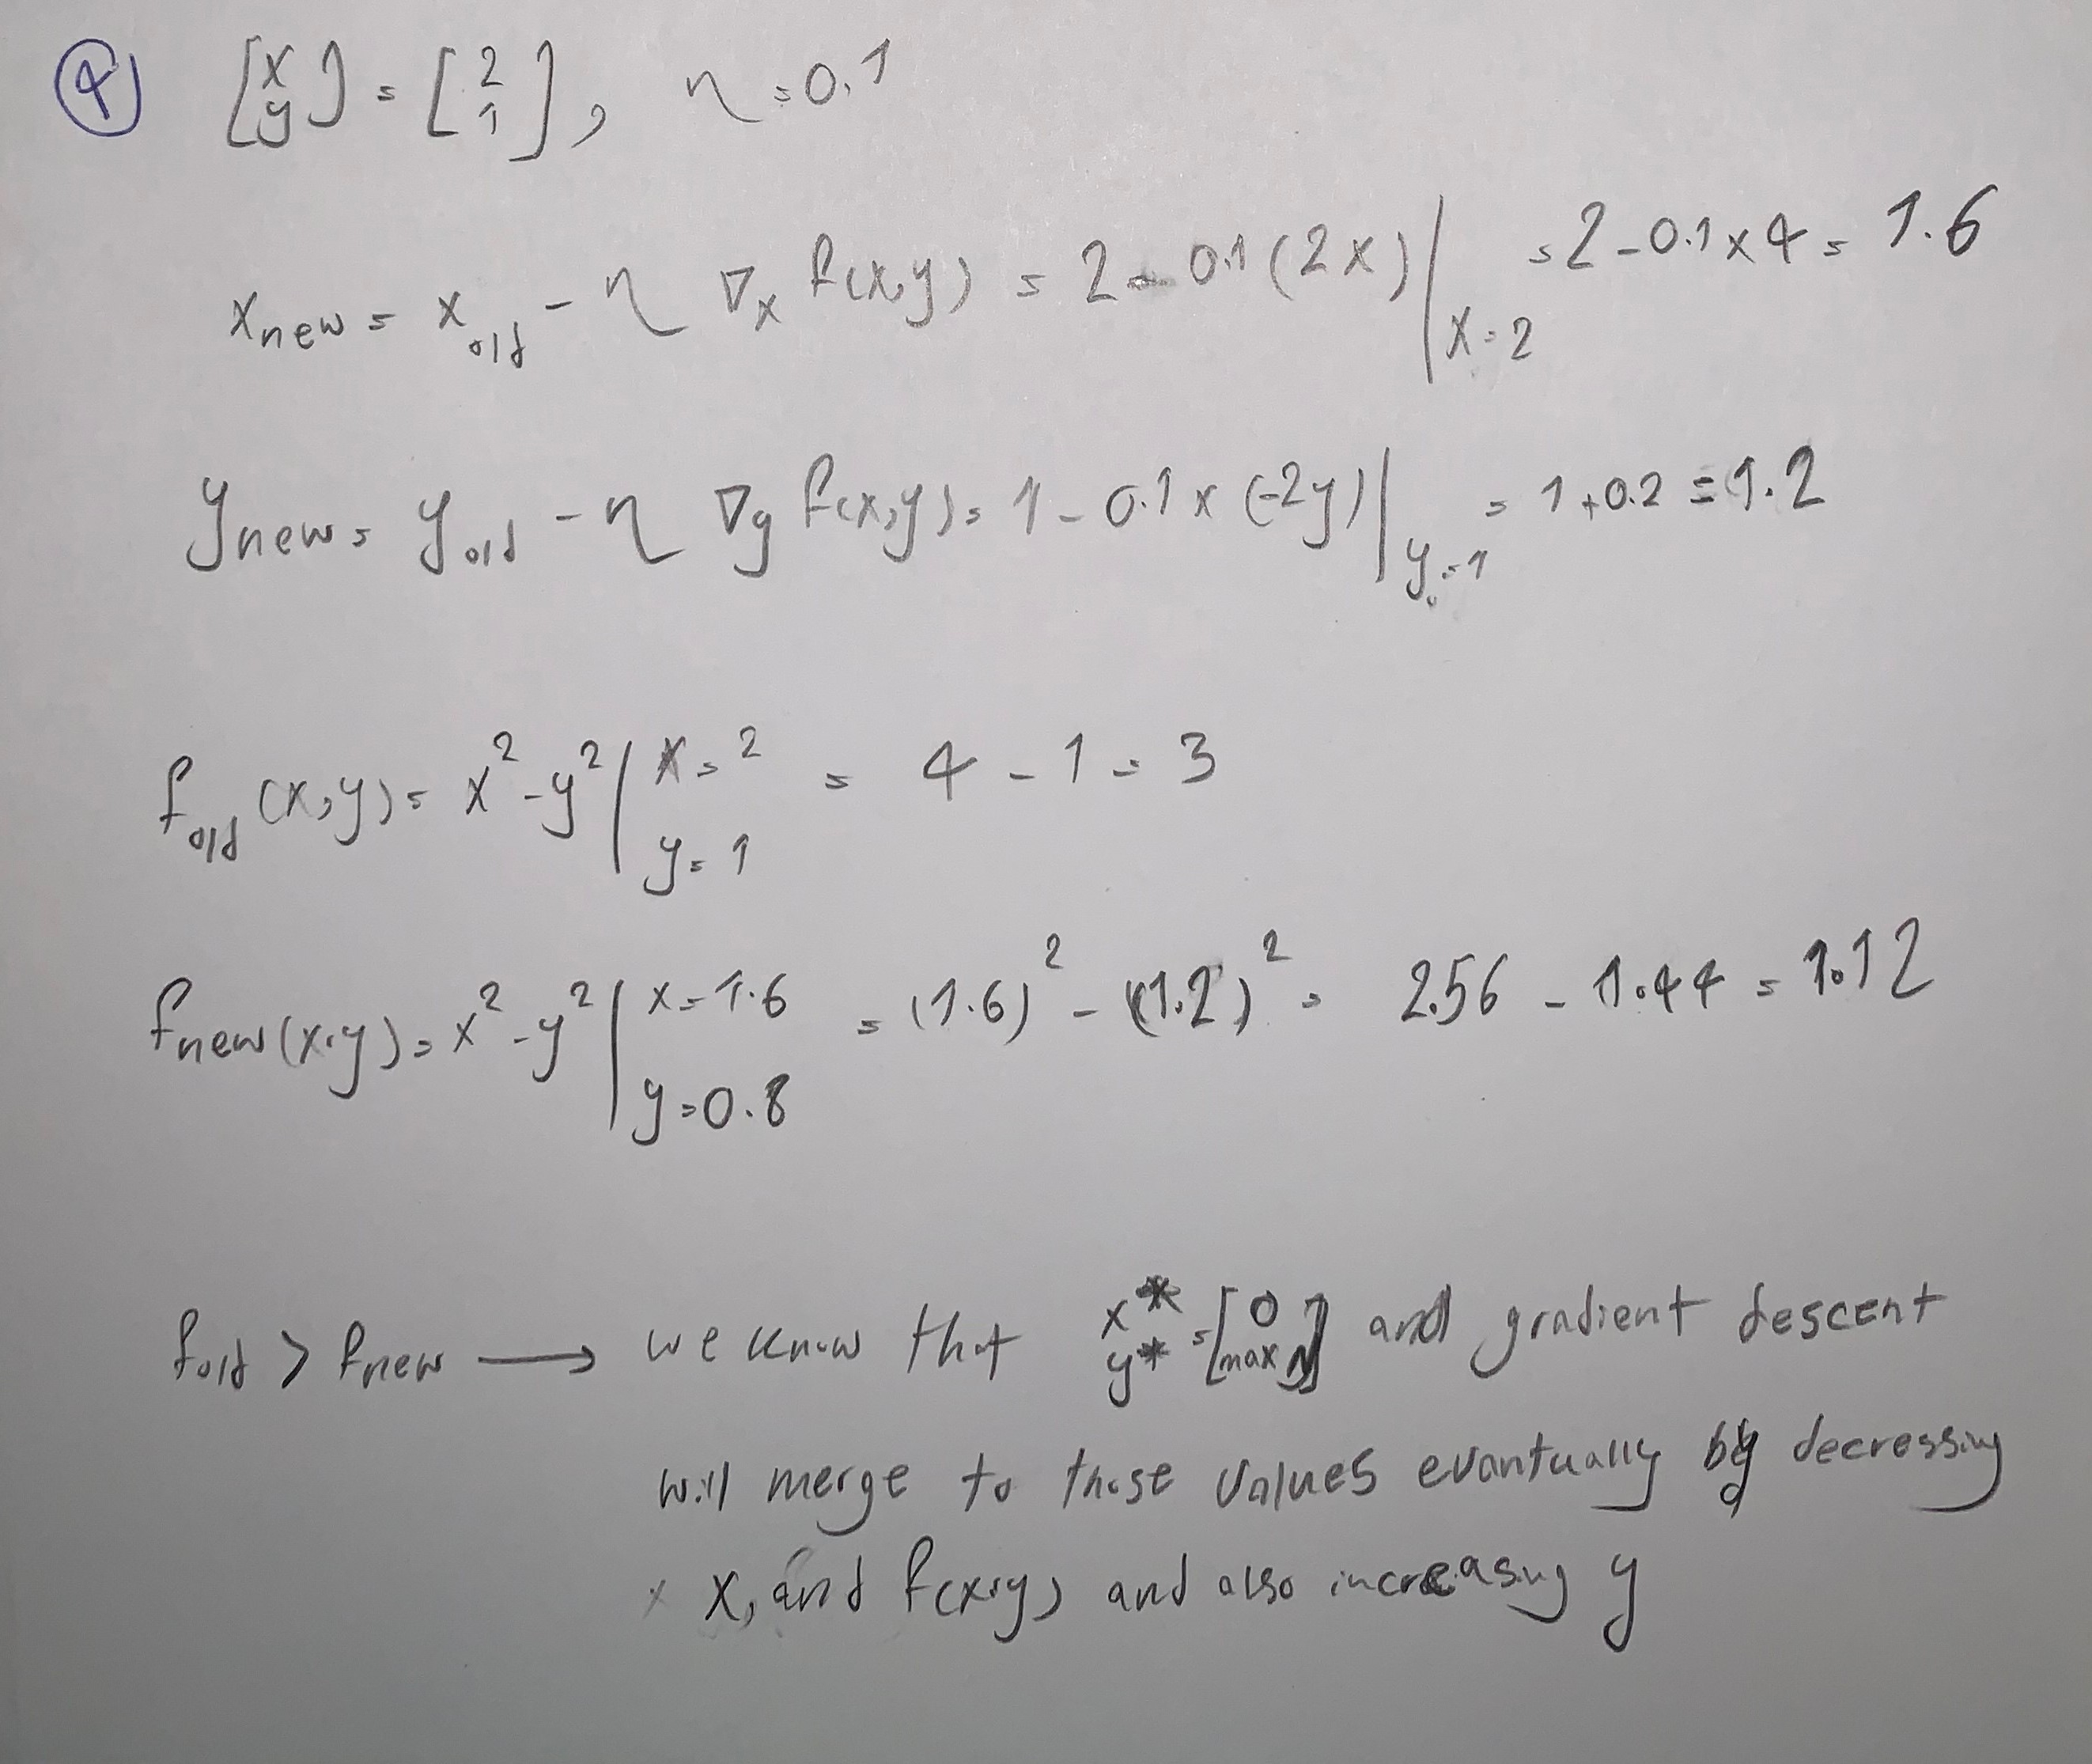 ④ [x y] = [2 1], η = 0.1
x_new = x_old - η ∇_x f(x,y) = 2 - 0.1(2x)|_{x=2} = 2 - 0.1 × 4 = 1.6
y_new = y_old - η ∇_y f(x,y) = 1 - 0.1 × (-2y)|_{y=1} = 1 + 0.2 = 1.2
f_old(x,y) = x² - y² | x=2 y=1 = 4 - 1 = 3
f_new(x,y) = x² - y² | x=1.6 y=0.8 = (1.6)² - (1.2)² = 2.56 - 1.44 = 1.12
f_old > f_new → we know that x* y* = [0 max] and gradient descent
will merge to those values evantually by decressing
x, and f(x,y) and also increasing y